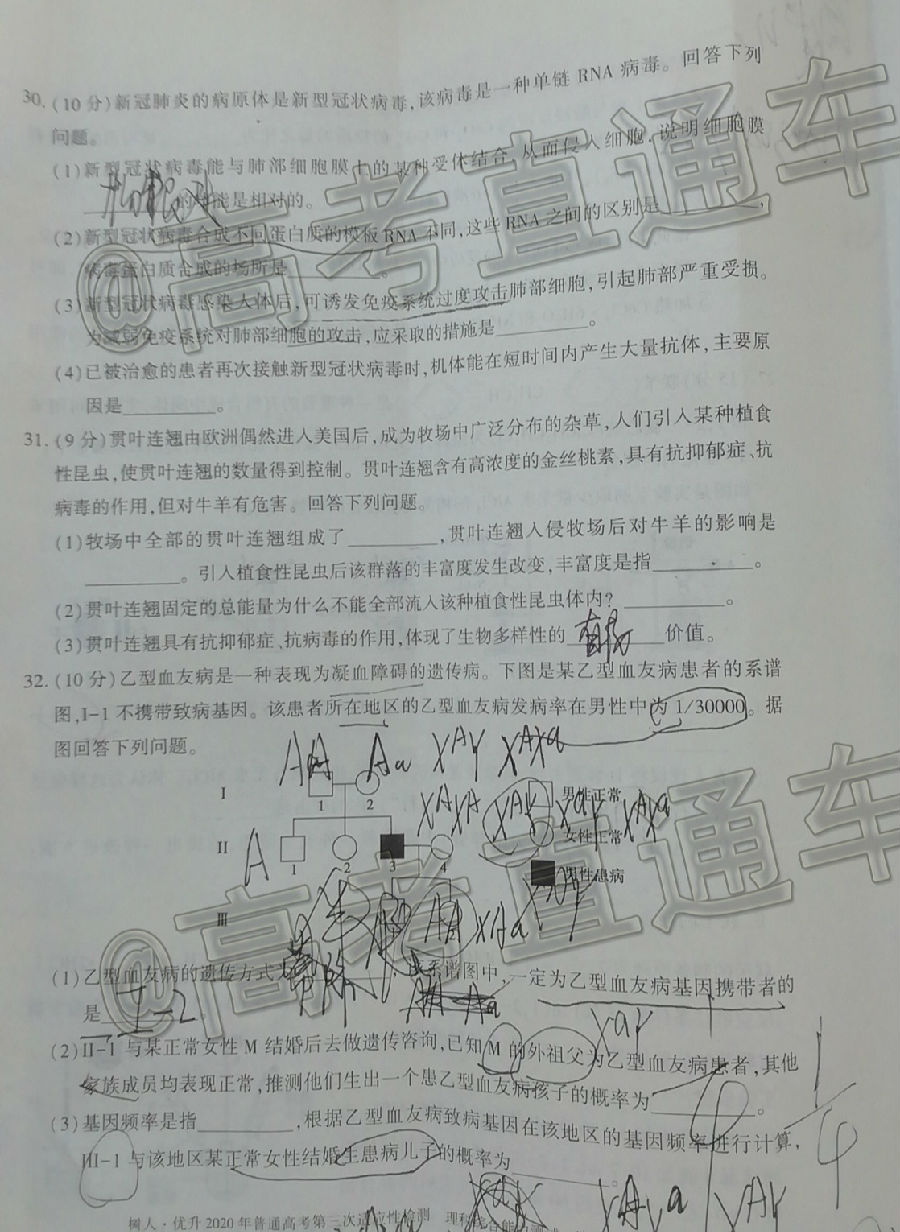 30. (10分)新冠肺炎的病原体是新型冠状病毒,该病毒是一种单链RNA病毒。回答下列
问题。
(1)新型冠状病毒能与肺部细胞膜上的某种受体结合,从而侵入细胞,说明细胞膜
的功能是相对的。
(2)新型冠状病毒合成不同蛋白质的模板RNA不同,这些RNA之间的区别是________,
病毒蛋白质合成的场所是________。
(3)新型冠状病毒感染人体后,可诱发免疫系统过度攻击肺部细胞,引起肺部严重受损。
为减弱免疫系统对肺部细胞的攻击,应采取的措施是________。
(4)已被治愈的患者再次接触新型冠状病毒时,机体能在短时间内产生大量抗体,主要原
因是________。
31. (9分)贯叶连翘由欧洲偶然进入美国后,成为牧场中广泛分布的杂草,人们引入某种植食
性昆虫,使贯叶连翘的数量得到控制。贯叶连翘含有高浓度的金丝桃素,具有抗抑郁症、抗
病毒的作用,但对牛羊有危害。回答下列问题。
(1)牧场中全部的贯叶连翘组成了________,贯叶连翘入侵牧场后对牛羊的影响是
________。引入植食性昆虫后该群落的丰富度发生改变,丰富度是指________。
(2)贯叶连翘固定的总能量为什么不能全部流入该种植食性昆虫体内?________。
(3)贯叶连翘具有抗抑郁症、抗病毒的作用,体现了生物多样性的 直接 价值。
32. (10分)乙型血友病是一种表现为凝血障碍的遗传病。下图是某乙型血友病患者的系谱
图,I-1不携带致病基因。该患者所在地区的乙型血友病发病率在男性中为1/30000。据
图回答下列问题。
AA Aa XAY XAXa
I 1 2 男性正常
XAXA XAY XaY XAXa
女性正常
II 1 2 3 4
A
男性患病
III
AA XAXa
(1)乙型血友病的遗传方式 系谱图中,一定为乙型血友病基因携带者的
是 I-2
Aa
XaY
(2)II-1与某正常女性M结婚后去做遗传咨询,已知M的外祖父为乙型血友病患者,其他
家族成员均表现正常,推测他们生出一个患乙型血友病孩子的概率为________。
(3)基因频率是指________,根据乙型血友病致病基因在该地区的基因频率进行计算,
III-1与该地区某正常女性结婚生患病儿子的概率为________。
树人·优升2020年普通高考第三次适应性检测 理科综合能力测试
XAXa XAY